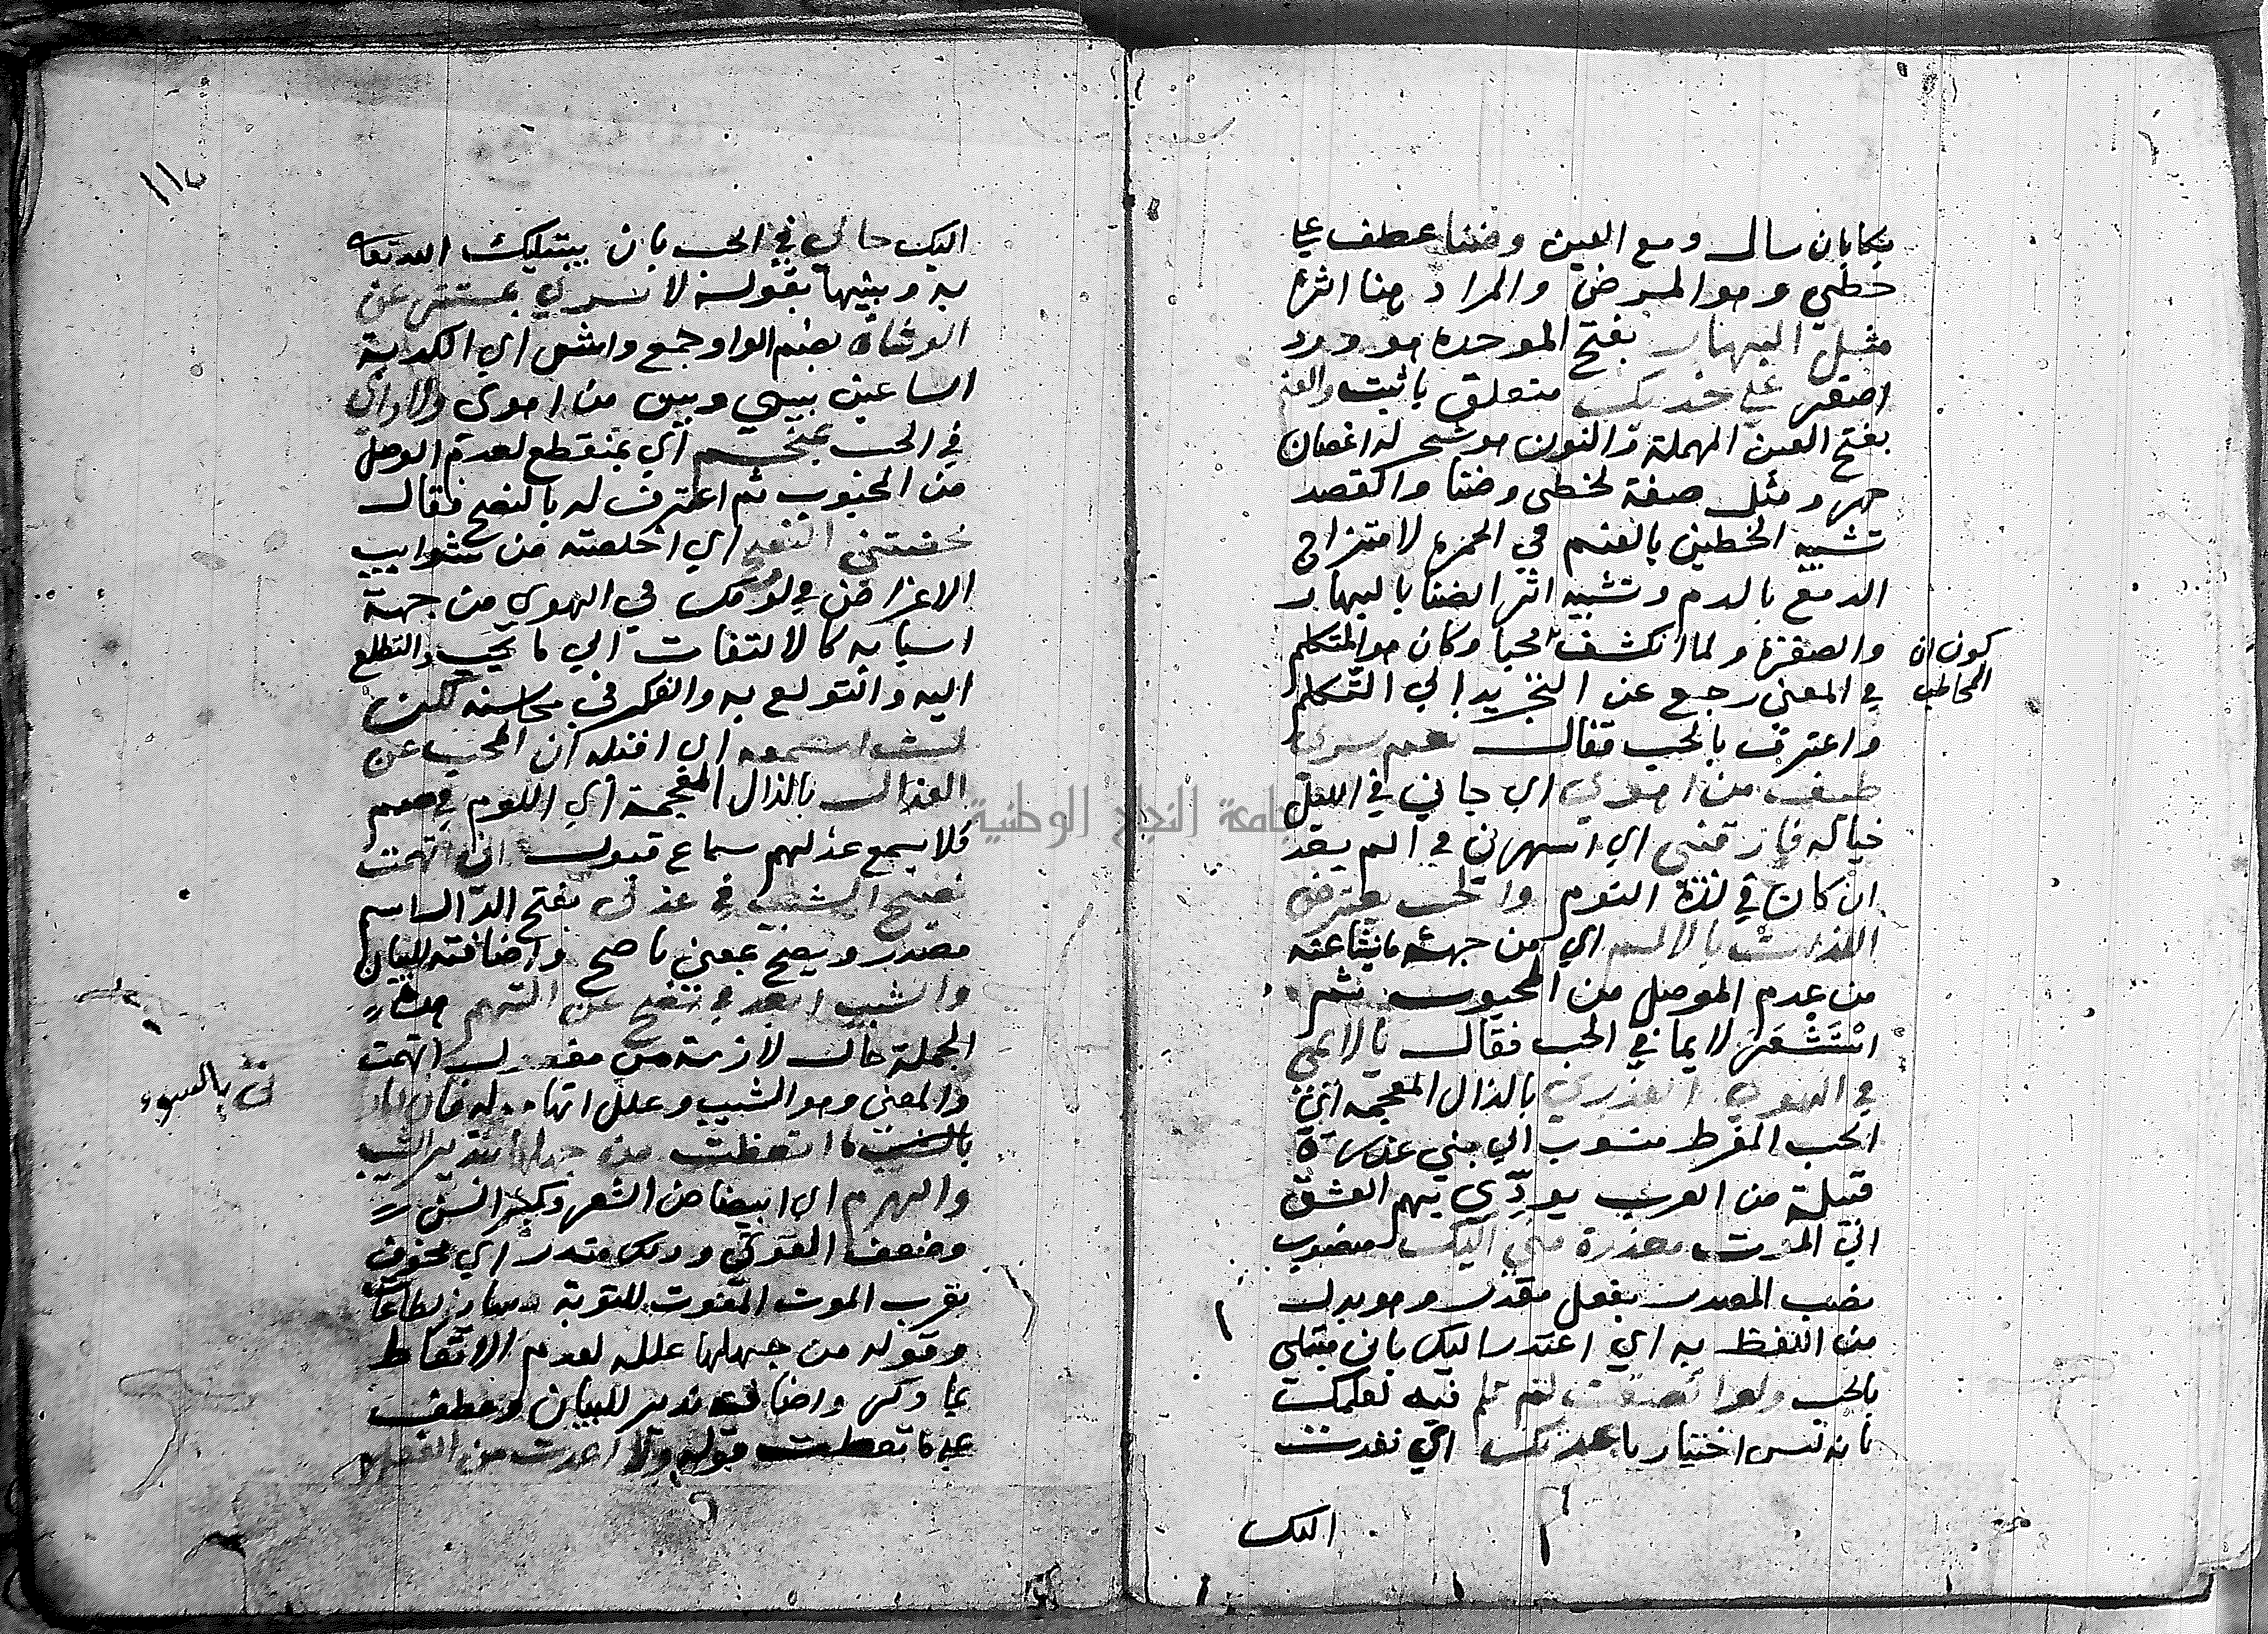 بكا بان سال دمع العين وضنا عطف علي
خطي وهو المرض والمراد هنا اثره
مثل البهار بفتح الموحدة هو ورد
اصفر علي خديك متعلق باثبت والعنم
بفتح العين المهملة والنون هو شجر له اغصان
حمر ومثل صفة لخطي وضنا والقصد
تشبيه الخطين بالعنم في الحمرة لامتزاج
الدمع بالدم وتشبيه اثر الضنا بالبهار
والصفرة ولما انكشف المحبا وكان هو المتكلم
كون ان
المخاطب
في المعني رجع عن التجريد الي التكلم
واعترف بالحب فقال نعم سري
طيف من اهوي اي جاني في الليل
خياله فارقني اي اسهرني في الم بعد
ان كان في لذة النوم والحب يعترض
اللذات بالالم اي من جهة ما ينشا عنه
من عدم الوصل من المحبوب ثم
استشعر لايما في الحب فقال يا لايمي
في الهوي العذري بالذال المعجمة اي
الحب المفرط منسوب الي بني عذرة
قبيلة من العرب يودي بهم العشق
الي الموت معذرة مني اليك منصوب
نصب المصدر بفعل مقدر وهو بدل
من اللفظ به اي اعتذر اليك باني مبتلي
بالحب ولو انصفت لم تلم فيه لعلمك
بانه ليس اختياريا عدتك اي تعدت
اليك
١١٧
اليك حالي في الحب بان يبتليك الله تعالى
به وبينها بقوله لا سري بمستتر عن
الوشاة بضم الواو جمع واش اي الكذبة
الساعين بيني وبين من اهوي ولا دائي
في الحب بمنحسم اي بمنقطع لعدم الوصل
من المحبوب ثم اعترف له بالنصح فقال
محضتني النصح اي اخلصته من شوايب
الاغراض في لومك في الهوي من جهة
اسبابه كالالتفات الي ما يحب والتطلع
اليه والتولع به والفكر في محاسنه لكن
لست اسمعه اي اقبله ان المحب عن
العذال بالذال المعجمة اي اللوم في صمم
فلا يسمع عذلهم سماع قبول اني اتهمت
نصيح الشيب في عذلي بفتح الذال اسم
مصدر ونصيح بمعني ناصح واضافته للبيان
والشيب ابعد في نصح عن التهم هذه
الجملة حال لازمة من مفعول اتهمت
والمعني وهو الشيب وعلل اتهامه له فان امارتي
تي بالسوء
بالسوء ما اتعظت من جهلها بنذير الشيب
والهرم اي ابيضاض الشعر وكبر السن
وضعف القوي وذلك منذر اي مخوف
بقرب الموت المفوت للتوبة وساير الطاعات
وقوله من جهلها علله لعدم الاتعاظ
بما ذكر واضافة نذير للبيان وعطف
علي ما تعطت قوله ولا اعدت من الفعل